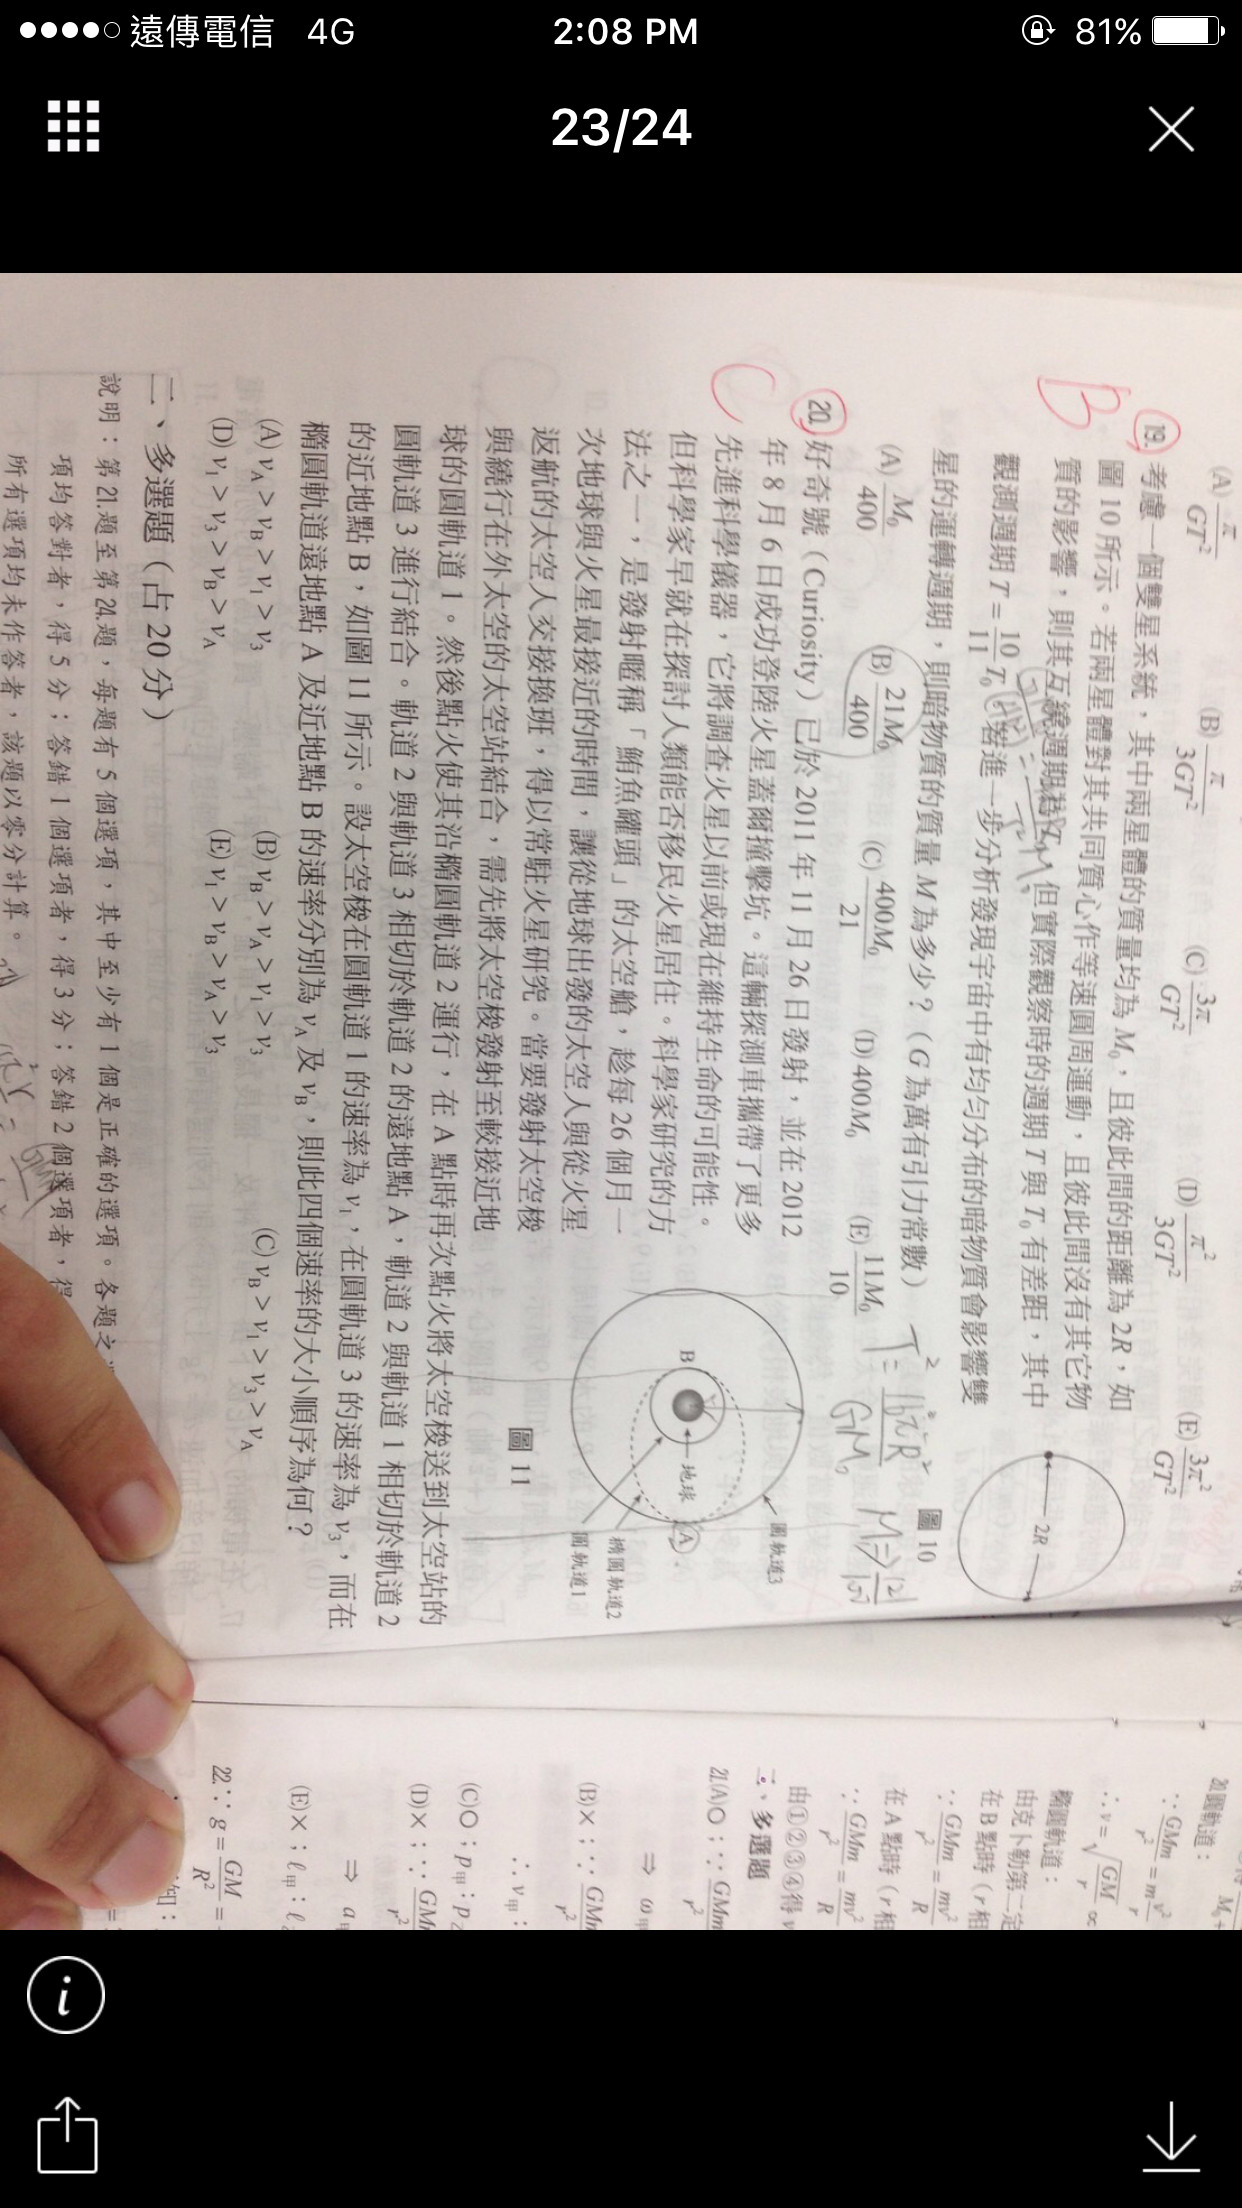 遠傳電信 4G 2:08 PM 81%
23/24
(A) π/GT² (B) π/3GT² (C) 3π/GT² (D) π²/3GT² (E) 3π²/GT²
B
19. 考慮一個雙星系統，其中兩星體的質量均為 M₀，且彼此間的距離為 2R，如
圖 10 所示。若兩星體對其共同質心作等速圓周運動，且彼此間沒有其它物
質的影響，則其互繞週期為 T₀，但實際觀察時的週期 T 與 T₀ 有差距，其中
觀測週期 T = 10/11 T₀。若進一步分析發現宇宙中有均勻分布的暗物質會影響雙
星的運轉週期，則暗物質的質量 M 為多少？（G 為萬有引力常數）
(A) M₀/400 (B) 21M₀/400 (C) 400M₀/21 (D) 400M₀ (E) 11M₀/10
2R
圖 10
C
20. 好奇號（Curiosity）已於 2011 年 11 月 26 日發射，並在 2012
年 8 月 6 日成功登陸火星蓋爾撞擊坑。這輛探測車攜帶了更多
先進科學儀器，它將調查火星以前或現在維持生命的可能性。
但科學家早就在探討人類能否移民火星居住。科學家研究的方
法之一，是發射暱稱「鮪魚罐頭」的太空艙，趁每 26 個月一
次地球與火星最接近的時間，讓從地球出發的太空人與從火星
返航的太空人交接換班，得以常駐火星研究。當要發射太空梭
與繞行在外太空的太空站結合，需先將太空梭發射至較接近地
球的圓軌道 1。然後點火使其沿橢圓軌道 2 運行，在 A 點時再次點火將太空梭送到太空站的
圓軌道 3 進行結合。軌道 2 與軌道 3 相切於軌道 2 的遠地點 A，軌道 2 與軌道 1 相切於軌道 2
的近地點 B，如圖 11 所示。設太空梭在圓軌道 1 的速率為 v₁，在圓軌道 3 的速率為 v₃，而在
橢圓軌道遠地點 A 及近地點 B 的速率分別為 vA 及 vB，則此四個速率的大小順序為何？
(A) vA > vB > v₁ > v₃ (B) vB > vA > v₁ > v₃ (C) vB > v₁ > v₃ > vA
(D) v₁ > v₃ > vB > vA (E) v₁ > vB > vA > v₃
圓軌道3
B
地球
A
橢圓軌道2
圓軌道1
圖 11
二、多選題（占 20 分）
說明：第 21. 題至第 24. 題，每題有 5 個選項，其中至少有 1 個是正確的選項。各題之
項均答對者，得 5 分；答錯 1 個選項者，得 3 分；答錯 2 個選項者，得
所有選項均未作答者，該題以零分計算。
20. 圓軌道：
∵ GMm/r² = m v²/r
∴ v = √(GM/r) ∝
橢圓軌道：
由克卜勒第二定
在 B 點時（r 相
∵ GMm/r² = mv²/R
在 A 點時（r 相
∵ GMm/r² = mv²/R
由①②③④得 v
二、多選題
21. (A)○；∵ GMm/r²
⇒ ω甲
(B)×；∵ GMm/r²
∴ v甲：
(C)○；p甲：p乙
(D)×；∵ GMm/r²
⇒ a甲
(E)×；ℓ甲：ℓ
22. ∵ g = GM/R² =
知：